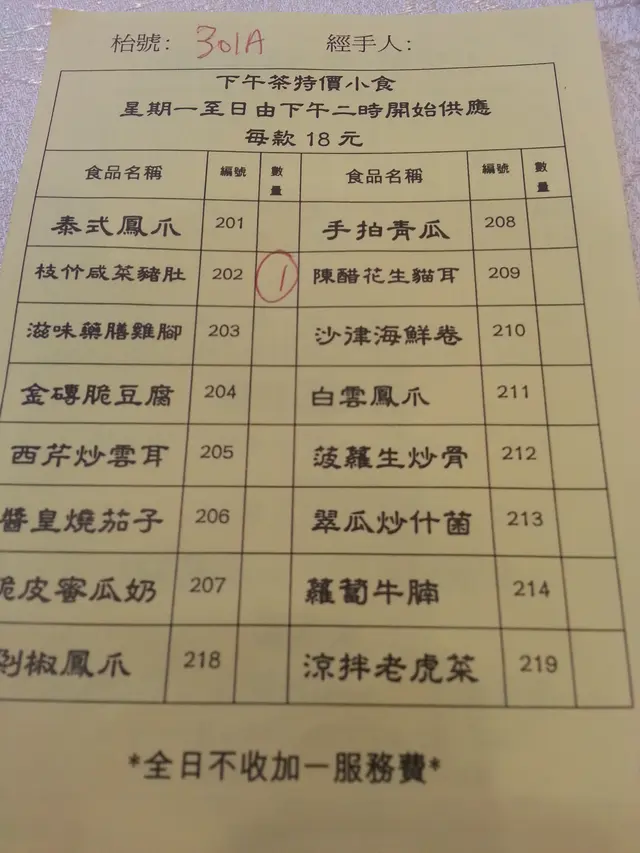 枱號: 301A 經手人:
下午茶特價小食
星期一至日由下午二時開始供應
每款 18 元
食品名稱 編號 數量 食品名稱 編號 數量
泰式鳳爪 201 手拍青瓜 208
枝竹咸菜豬肚 202 1 陳醋花生貓耳 209
滋味藥膳雞腳 203 沙律海鮮卷 210
金磚脆豆腐 204 白雲鳳爪 211
西芹炒雲耳 205 菠蘿生炒骨 212
醬皇燒茄子 206 翠瓜炒什菌 213
脆皮蜜瓜奶 207 蘿蔔牛腩 214
剁椒鳳爪 218 涼拌老虎菜 219
*全日不收加一服務費*